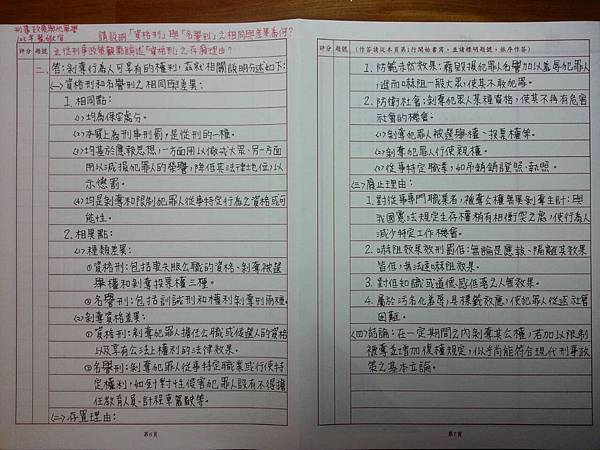 刑事政策與犯罪學
請說明「資格刑」與「名譽刑」之相同與差異為何?
並從刑事政策觀點論述「資格刑」之存廢理由?
評分 題號
二、答:剝奪行為人可享有的權利,茲就相關說明分述如下:
(一)資格刑和名譽刑之相同與差異:
1.相同點:
(1)均為保安處分。
(2)本質上為刑事刑罰,是從刑的一種。
(3)均基於應報思想,一方面用以儆戒大眾、另一方面
用以減損犯罪人的榮譽,降低其法律地位,以
示懲罰。
(4)均是剝奪和限制犯罪人從事特定行為之資格或可
能性。
2.相異點:
(1)種類差異:
①資格刑:包括喪失服公職的資格、剝奪被選
舉權和剝奪投票權三種。
②名譽刑:包括訓誡刑和權利剝奪刑兩種。
(2)剝奪資格差異:
①資格刑:剝奪犯罪人擔任公職或候選人的資格
以及享有公法上權利的法律效果。
②名譽刑:剝奪犯罪人從事特定職業或行使特
定權利,如針對性侵害犯罪人設有不得擔
任教育人員、計程車駕駛等。
(二)存置理由:
第6頁
評分 題號 (作答請從本頁第1行開始書寫,並請標明題號,依序作答)
1.防範未然效果:藉毀損犯罪人名譽加以羞辱犯罪人
,進而嚇阻一般大眾,使其不敢犯罪。
2.防衛社會:剝奪犯罪人某種資格,使其不再有危害
社會的機會:
(1)剝奪犯罪人被選舉權、投票權等。
(2)剝奪犯罪人行使親權。
(3)從事特定職業,如吊銷銷證照、執照。
(三)廢止理由:
1.對從事專門職業者,褫奪公權無異剝奪生計:與
我國憲法規定生存權稍有相衝突之處,使行為人
減少特定工作機會。
2.嚇阻效果效刑罰低:無論是應報、隔離其效果
皆低,無法達嚇阻效果。
3.對低知識或道德感低落之人無效。
4.屬於汙名化羞辱,具標籤效應,使犯罪人復返社會
困難。
(四)結論:在一定期間之內剝奪其公權,若加以限制
褫奪並增加復權規定,似乎尚能符合現代刑事政
策之基本立論。
第7頁